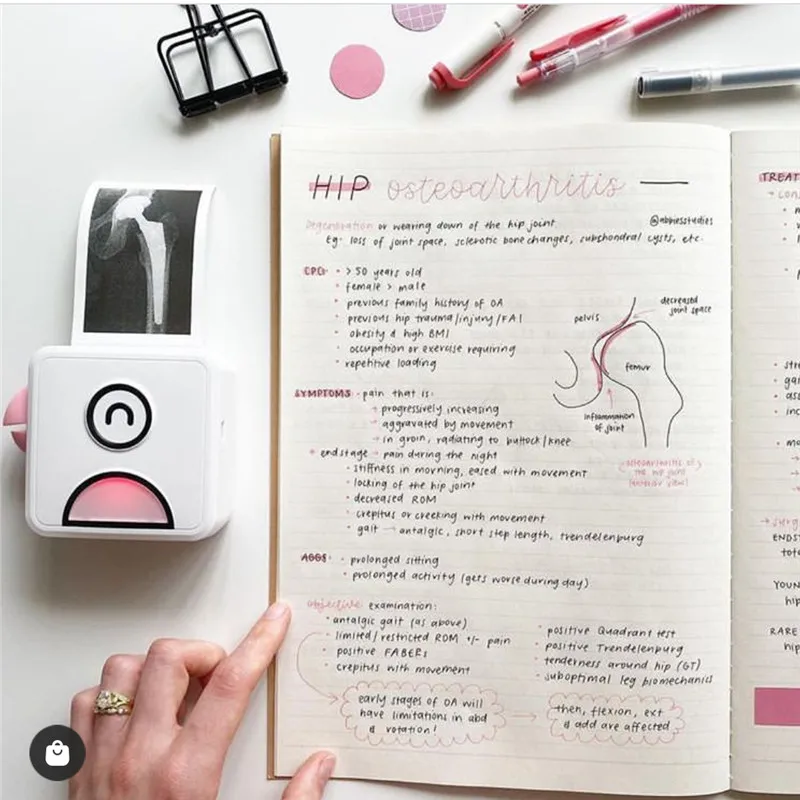 HIP osteoarthritis
@abbiesstudies
Degeneration or wearing down of the hip joint
Eg. loss of joint space, sclerotic bone changes, subchondral cysts, etc.
CPG · > 50 years old
· female > male
· previous family history of OA
· previous hip trauma/injury/FAI
· obesity & high BMI
· occupation or exercise requiring
repetitive loading
decreased
joint space
pelvis
femur
inflammation
of joint
osteoarthritis of
the hip joint
(anterior view)
SYMPTOMS · pain that is:
→ progressively increasing
→ aggravated by movement
→ in groin, radiating to buttock/knee
* endstage → pain during the night
· stiffness in morning, eased with movement
· locking of the hip joint
· decreased ROM
· crepitus or creeking with movement
· gait → antalgic, short step length, trendelenburg
AGGS · prolonged sitting
· prolonged activity (gets worse during day)
Objective examination:
· antalgic gait (as above)
· limited/restricted ROM +/- pain
· positive FABERs
· crepitus with movement
· positive Quadrant test
· positive Trendelenburg
· tenderness around hip (GT)
· suboptimal leg biomechanics
early stages of OA will
have limitations in abd
& rotation!
then, flexion, ext
& add are affected
TREAT
ENDST
YOUN
hip
RARE